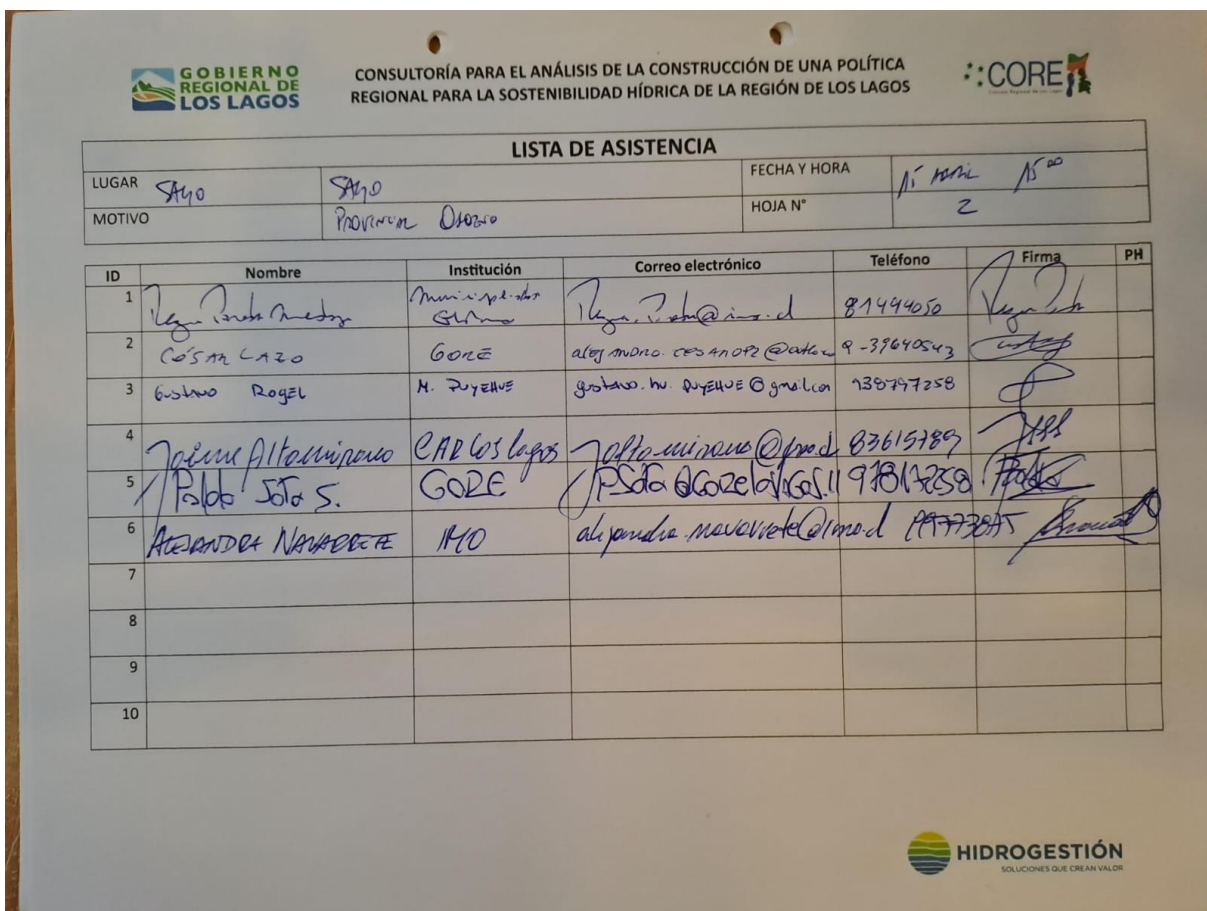 GOBIERNO
REGIONAL DE
LOS LAGOS
CONSULTORÍA PARA EL ANÁLISIS DE LA CONSTRUCCIÓN DE UNA POLÍTICA
REGIONAL PARA LA SOSTENIBILIDAD HÍDRICA DE LA REGIÓN DE LOS LAGOS
CORE
LISTA DE ASISTENCIA
LUGAR SAGO SAGO FECHA Y HORA 15 ABRIL 15:00
MOTIVO PROVINCIAL OSORNO HOJA N° 2
ID Nombre Institución Correo electrónico Teléfono Firma PH
1 81494050
2 CÉSAR LAZO GORE 9-39640543
3 Gustavo Rogel M. PUYEHUE 938797258
4 Jaime Altamirano CAR Los Lagos 83615789
5 Pablo Soto S. GORE 97817258
6 ALEJANDRA NAVARRETE IMO alejandra.navarrete@imo.cl
7
8
9
10
HIDROGESTIÓN
SOLUCIONES QUE CREAN VALOR